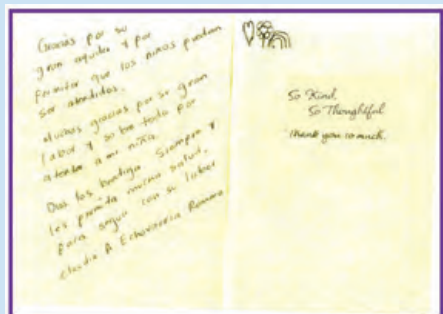 Gracias por su
gran ayuda y por
permitir que los niños puedan
ser atendidos.
Muchas gracias por su gran
labor y sobre todo por
atender a mi niña.
Dios los bendiga siempre y
les permita mucha salud,
para seguir con su labor
Claudia A Echavarria Romero
So Kind,
So Thoughtful
thank you so much.